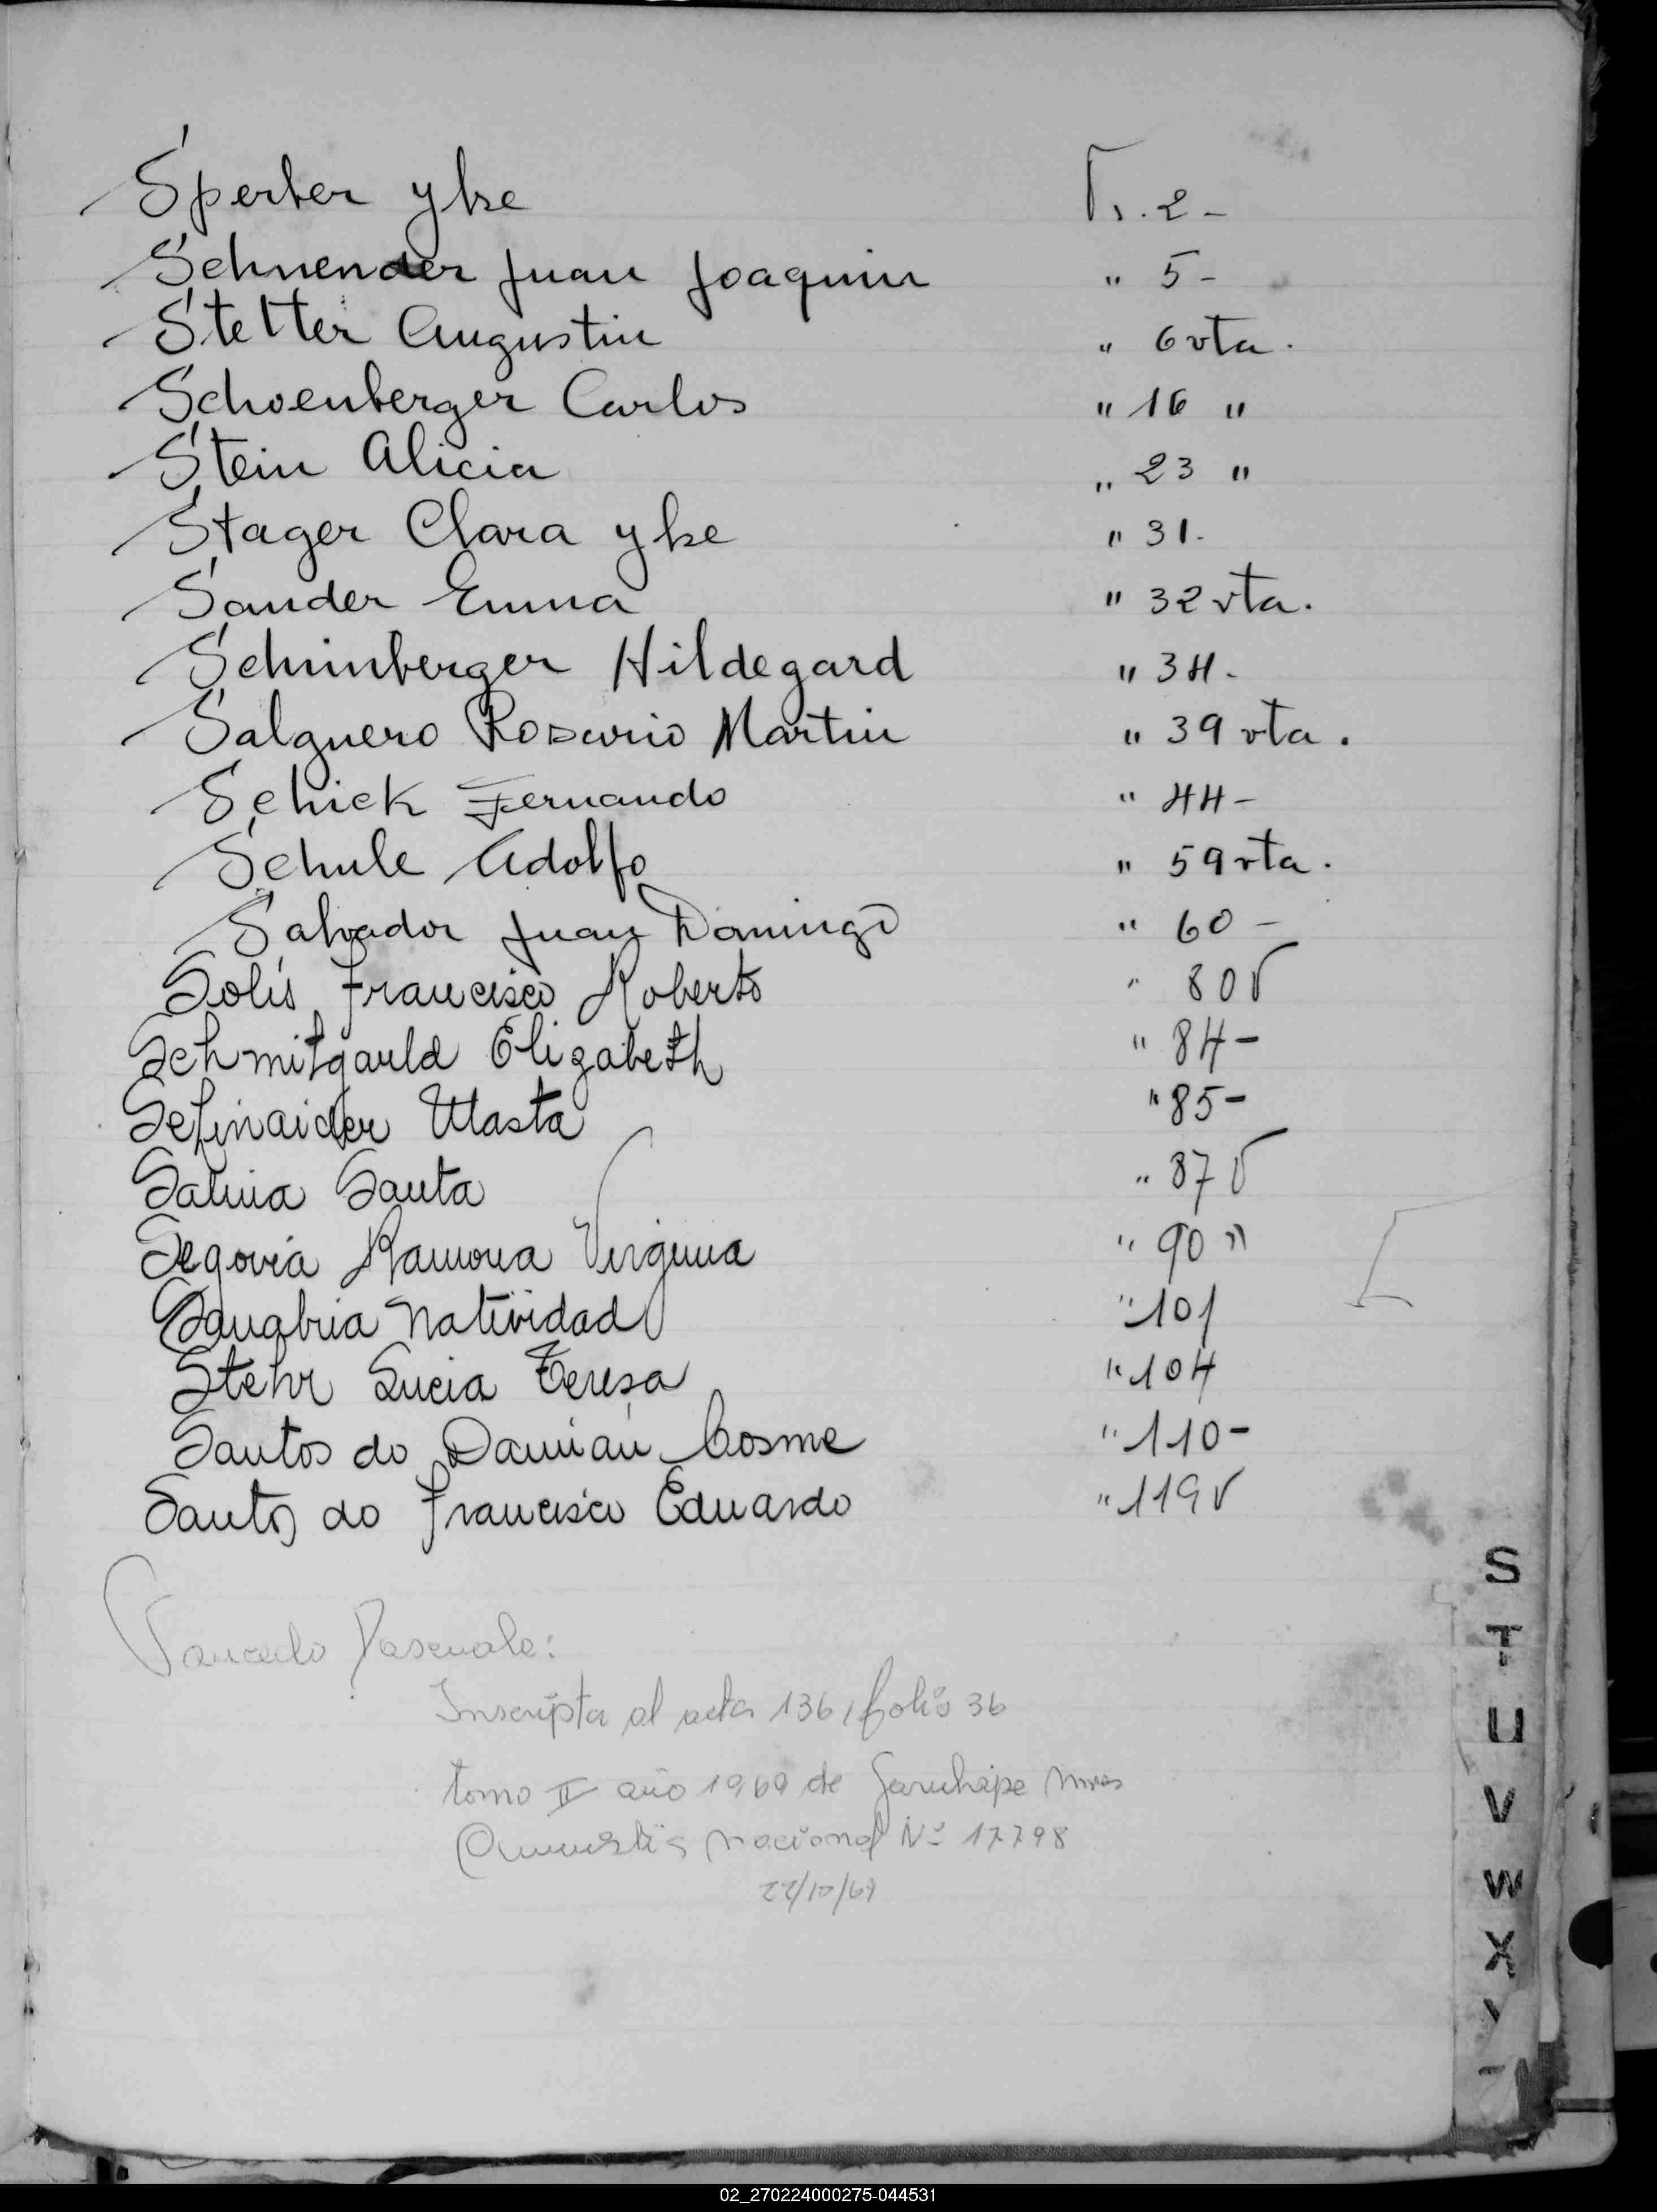 Sperber ylse F. 2-
Schnender Juan Joaquin " 5-
Stetter Augustin " 6 vta.
Schoenberger Carlos " 16 "
Stein Alicia " 23 "
Stager Clara ylse " 31.
Sander Emma " 32 vta.
Schimberger Hildegard " 34-
Salguero Rosario Martin " 39 vta.
Schick Fernando " 44-
Schule Adolfo " 59 vta.
Salvador Juan Domingo " 60-
Solis Francisco Roberto " 80 v
Schmitgarld Elizabeth " 84-
Ulasta " 85-
Santa " 87 v
Segovia Ramona Virginia " 90 "
Sanabria Natividad " 101
Stehr Lucia Teresa " 104
Santos do Damián Cosme " 110-
Santos do Francisco Eduardo " 119 v
Inscripta al acta 136, folio 36
tomo II año 1969 de Garuhape Mnes
Amnistia Nacional Nº 17798
22/10/69
S
T
U
V
W
X
Y
02_270224000275-044531